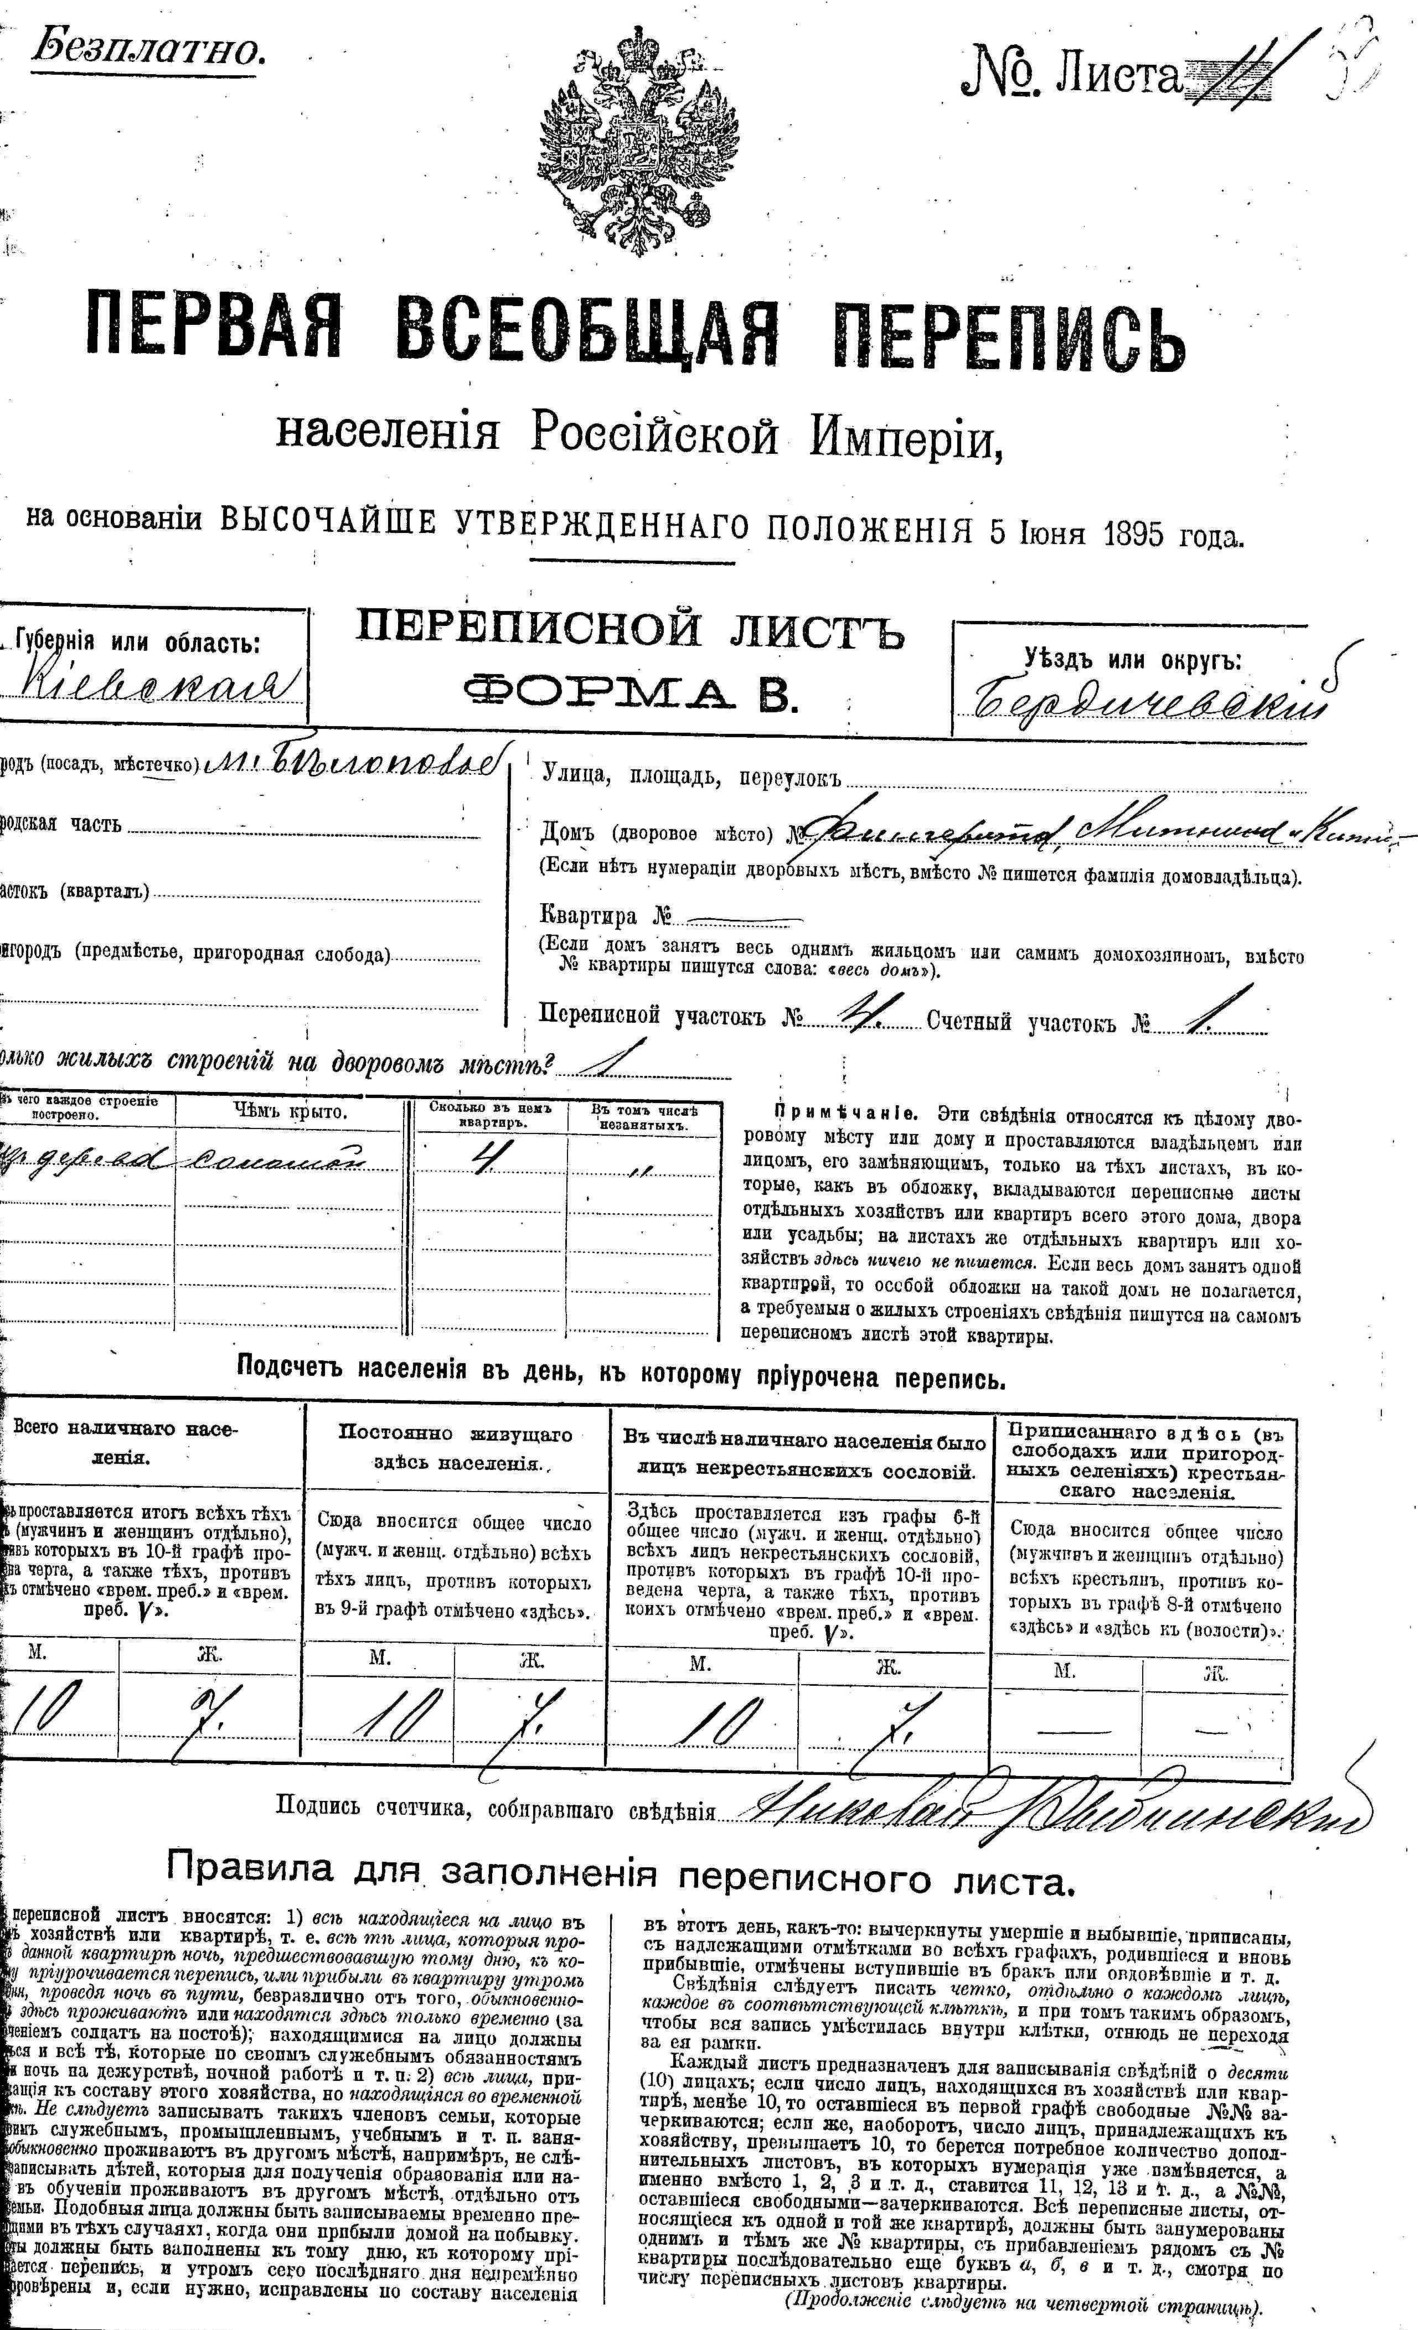 Безплатно.
№. Листа
ПЕРВАЯ ВСЕОБЩАЯ ПЕРЕПИСЬ
населенія Россійской Имперіи,
на основаніи ВЫСОЧАЙШЕ УТВЕРЖДЕННАГО ПОЛОЖЕНІЯ 5 Іюня 1895 года.
Губернія или область:
Кіевская
ПЕРЕПИСНОЙ ЛИСТЪ
ФОРМА В.
Уѣздъ или округъ:
Бердичевскій
родъ (посадъ, мѣстечко) м. Бѣлополье
родская часть
астокъ (кварталъ)
игородъ (предмѣстье, пригородная слобода)
Улица, площадь, переулокъ
Домъ (дворовое мѣсто) №
(Если нѣтъ нумераціи дворовыхъ мѣстъ, вмѣсто № пишется фамилія домовладѣльца).
Квартира №
(Если домъ занятъ весь однимъ жильцомъ или самимъ домохозяиномъ, вмѣсто
№ квартиры пишутся слова: «весь домъ»).
Переписной участокъ № 4. Счетный участокъ № 1.
олько жилыхъ строеній на дворовомъ мѣстѣ? 1
ъ чего каждое строеніе
построено.
Чѣмъ крыто.
Сколько въ немъ
квартиръ.
Въ томъ числѣ
незанятыхъ.
дерева соломой 4. "
Примѣчаніе. Эти свѣдѣнія относятся къ цѣлому дво-
ровому мѣсту или дому и проставляются владѣльцемъ или
лицомъ, его замѣняющимъ, только на тѣхъ листахъ, въ ко-
торые, какъ въ обложку, вкладываются переписные листы
отдѣльныхъ хозяйствъ или квартиръ всего этого дома, двора
или усадьбы; на листахъ же отдѣльныхъ квартиръ или хо-
зяйствъ здѣсь ничего не пишется. Если весь домъ занятъ одной
квартирой, то особой обложки на такой домъ не полагается,
а требуемыя о жилыхъ строеніяхъ свѣдѣнія пишутся на самомъ
переписномъ листѣ этой квартиры.
Подсчетъ населенія въ день, къ которому пріурочена перепись.
Всего наличнаго насе-
ленія.
ь проставляется итогъ всѣхъ тѣхъ
(мужчинъ и женщинъ отдѣльно),
ивъ которыхъ въ 10-й графѣ про-
на черта, а также тѣхъ, противъ
ъ отмѣчено «врем. преб.» и «врем.
преб. V».
Постоянно живущаго
здѣсь населенія.
Сюда вносится общее число
(мужч. и женщ. отдѣльно) всѣхъ
тѣхъ лицъ, противъ которыхъ
въ 9-й графѣ отмѣчено «здѣсь».
Въ числѣ наличнаго населенія было
лицъ некрестьянскихъ сословій.
Здѣсь проставляется изъ графы 6-й
общее число (мужч. и женщ. отдѣльно)
всѣхъ лицъ некрестьянскихъ сословій,
противъ которыхъ въ графѣ 10-й про-
ведена черта, а также тѣхъ, противъ
коихъ отмѣчено «врем. преб.» и «врем.
преб. V».
Приписаннаго здѣсь (въ
слободахъ или пригород-
ныхъ селеніяхъ) крестьян-
скаго населенія.
Сюда вносится общее число
(мужчинъ и женщинъ отдѣльно)
всѣхъ крестьянъ, противъ ко-
торыхъ въ графѣ 8-й отмѣчено
«здѣсь» и «здѣсь къ (волости)».
М. Ж. М. Ж. М. Ж. М. Ж.
10 7. 10 7. 10 7. — —
Подпись счетчика, собиравшаго свѣдѣнія Николай
Правила для заполненія переписного листа.
переписной листъ вносятся: 1) всѣ находящіеся на лицо въ
ъ хозяйствѣ или квартирѣ, т. е. всѣ тѣ лица, которыя про-
данной квартирѣ ночь, предшествовавшую тому дню, къ ко-
у пріурочивается перепись, или прибыли въ квартиру утромъ
проведя ночь въ пути, безразлично отъ того, обыкновенно-
здѣсь проживаютъ или находятся здѣсь только временно (за
ченіемъ солдатъ на постоѣ); находящимися на лицо должны
ься и всѣ тѣ, которые по своимъ служебнымъ обязанностямъ
и ночь на дежурствѣ, ночной работѣ и т. п. 2) всѣ лица, при-
ащія къ составу этого хозяйства, но находящіяся во временной
Не слѣдуетъ записывать такихъ членовъ семьи, которые
имъ служебнымъ, промышленнымъ, учебнымъ и т. п. заня-
обыкновенно проживаютъ въ другомъ мѣстѣ, напримѣръ, не слѣ-
записывать дѣтей, которыя для полученія образованія или на-
въ обученіи проживаютъ въ другомъ мѣстѣ, отдѣльно отъ
емьи. Подобныя лица должны быть записываемы временно пре-
щими въ тѣхъ случаяхъ, когда они прибыли домой на побывку.
ты должны быть заполнены къ тому дню, къ которому прі-
ается перепись, и утромъ сего послѣдняго дня непремѣнно
ровѣрены и, если нужно, исправлены по составу населенія
въ этотъ день, какъ-то: вычеркнуты умершіе и выбывшіе, приписаны,
съ надлежащими отмѣтками во всѣхъ графахъ, родившіеся и вновь
прибывшіе, отмѣчены вступившіе въ бракъ или овдовѣвшіе и т. д.
Свѣдѣнія слѣдуетъ писать четко, отдѣльно о каждомъ лицѣ,
каждое въ соотвѣтствующей клѣткѣ, и при томъ такимъ образомъ,
чтобы вся запись умѣстилась внутри клѣтки, отнюдь не переходя
за ея рамки.
Каждый листъ предназначенъ для записыванія свѣдѣній о десяти
(10) лицахъ; если число лицъ, находящихся въ хозяйствѣ или квар-
тирѣ, менѣе 10, то оставшіеся въ первой графѣ свободные №№ за-
черкиваются; если же, наоборотъ, число лицъ, принадлежащихъ къ
хозяйству, превышаетъ 10, то берется потребное количество допол-
нительныхъ листовъ, въ которыхъ нумерація уже измѣняется, а
именно вмѣсто 1, 2, 3 и т. д., ставится 11, 12, 13 и т. д., а №№,
оставшіеся свободными—зачеркиваются. Всѣ переписные листы, от-
носящіеся къ одной и той же квартирѣ, должны быть занумерованы
однимъ и тѣмъ же № квартиры, съ прибавленіемъ рядомъ съ №
квартиры послѣдовательно еще буквъ а, б, в и т. д., смотря по
числу переписныхъ листовъ квартиры.
(Продолженіе слѣдуетъ на четвертой страницѣ).